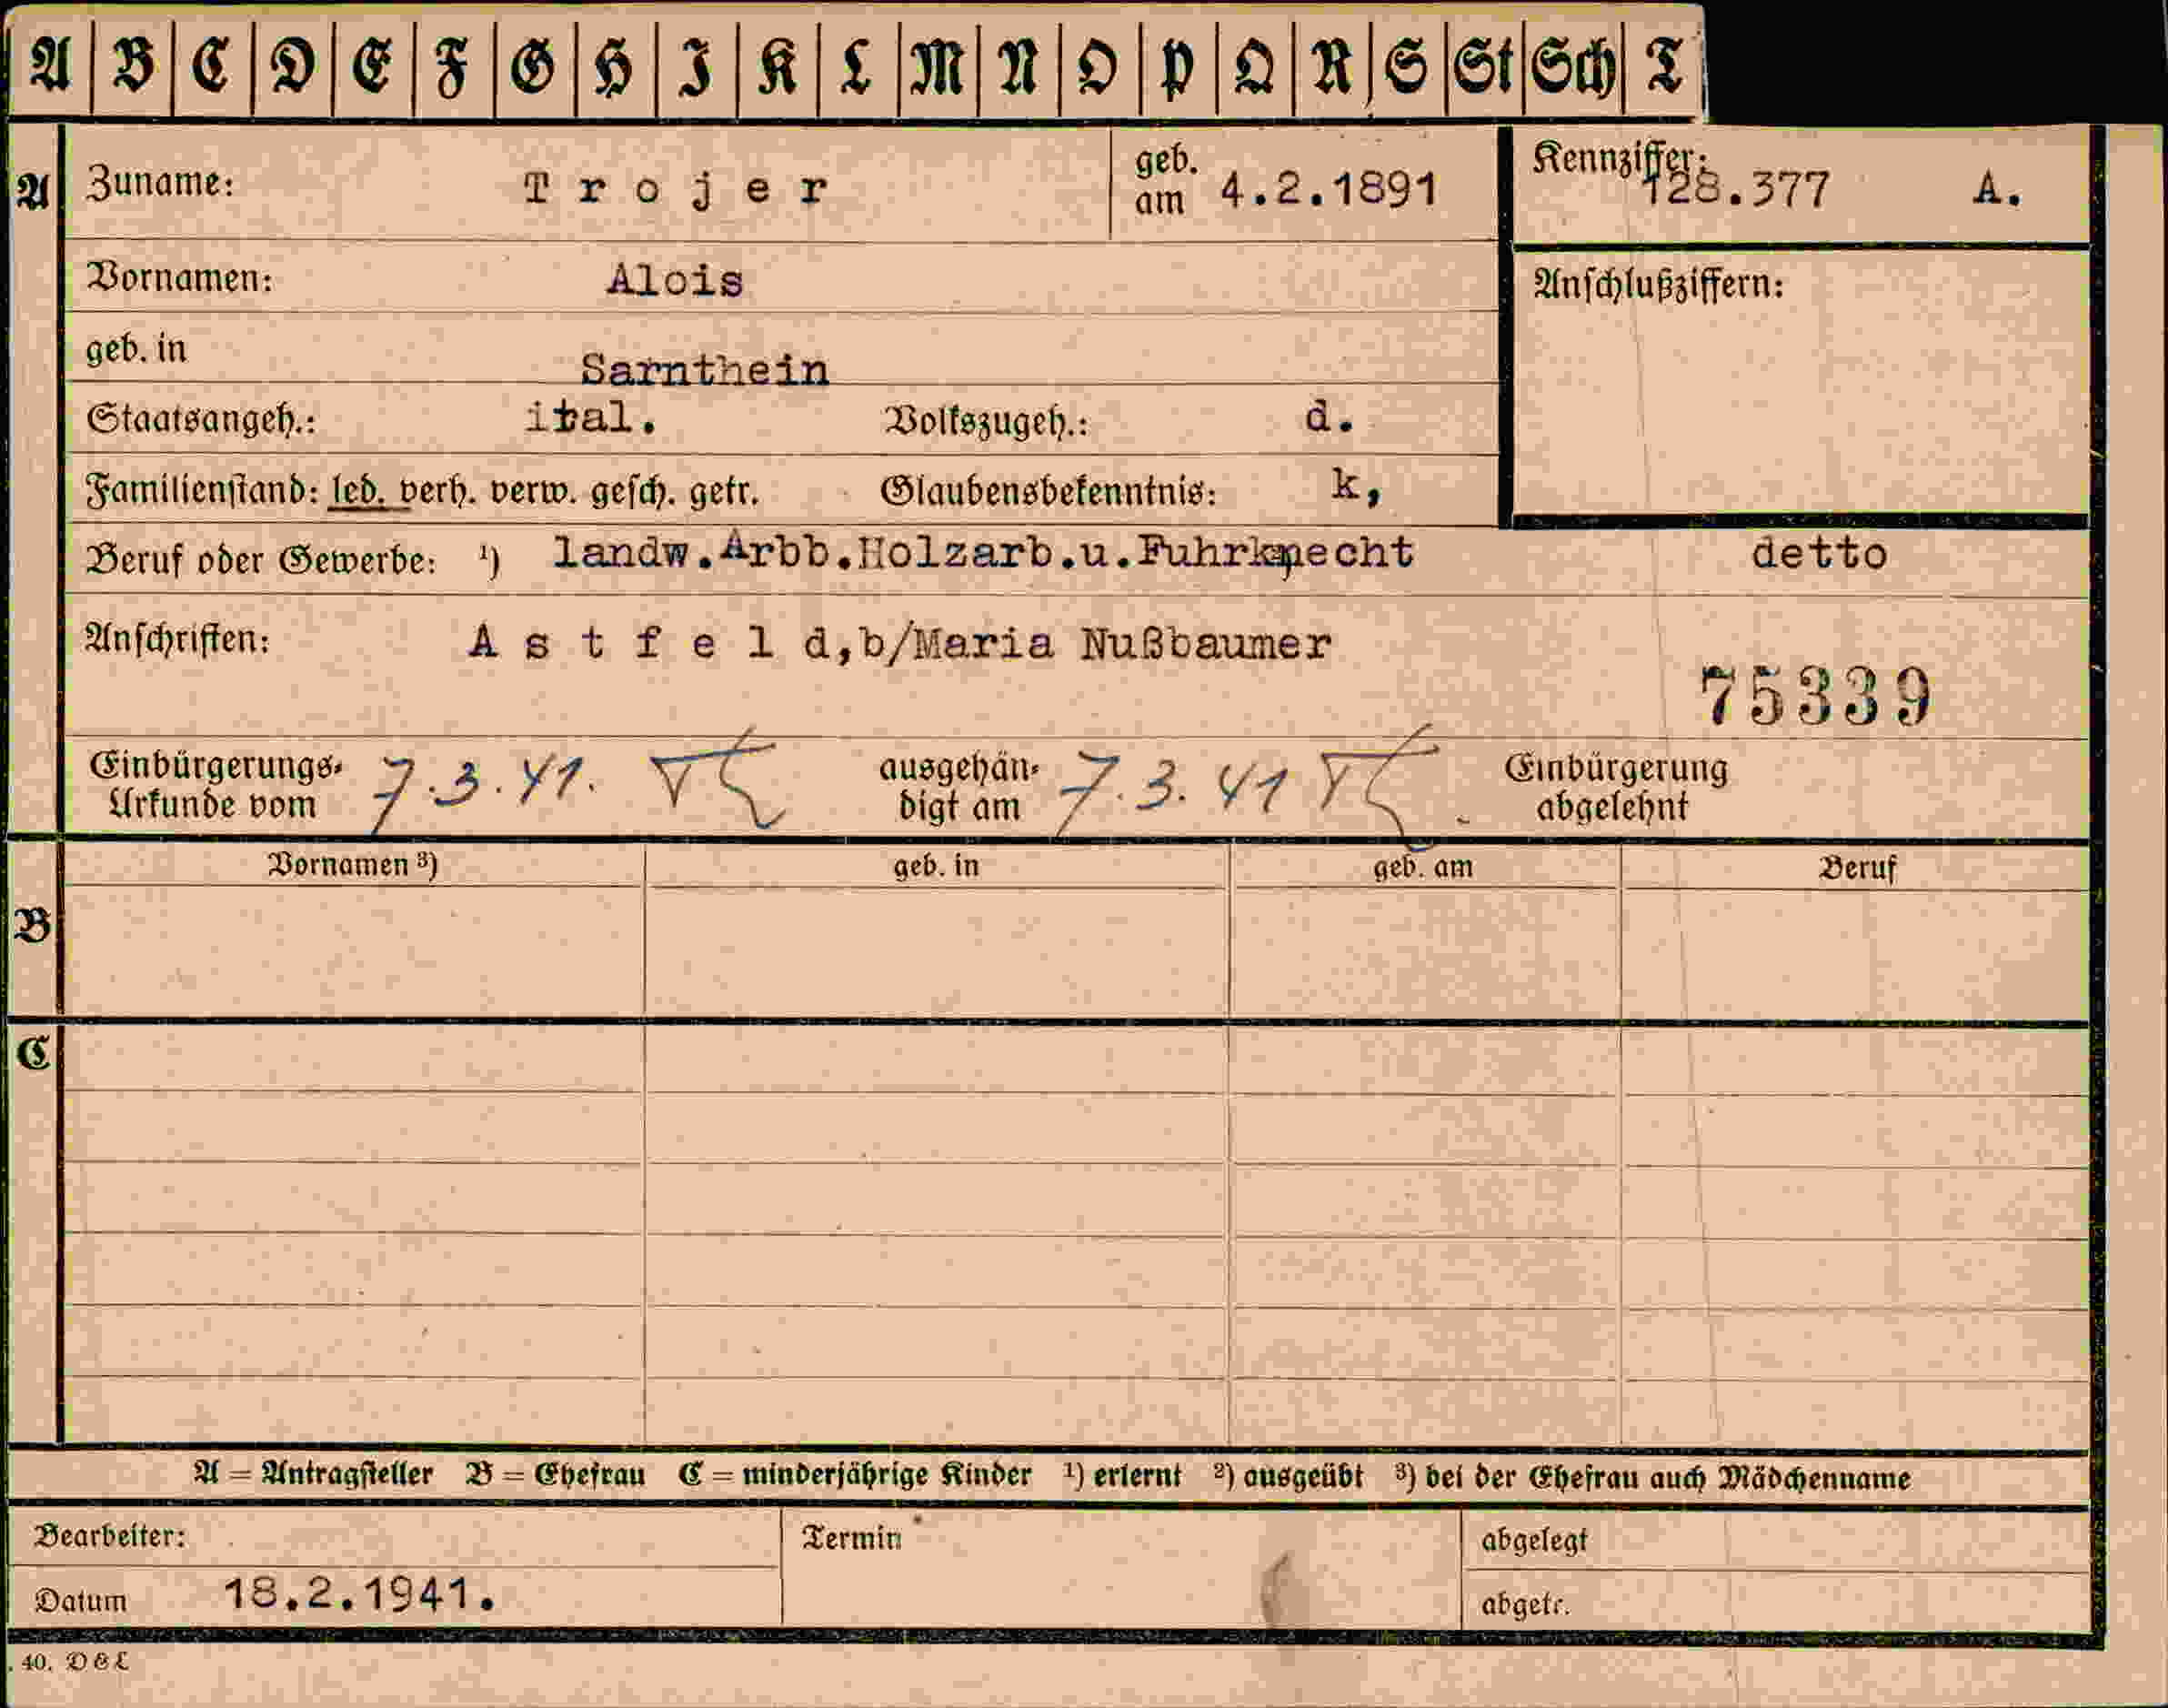 A B C D E F G H I K L M N O P Q R S St Sch T
A Zuname: Trojer geb. am 4.2.1891 Kennziffer: 128.377 A.
Vornamen: Alois Anschlußziffern:
geb. in Sarnthein
Staatsangeh.: ital. Volkszugeh.: d.
Familienstand: led. verh. verw. gesch. getr. Glaubensbekenntnis: k,
Beruf oder Gewerbe: ¹) landw.Arbb.Holzarb.u.Fuhrknecht detto
Anschriften: Astfeld,b/Maria Nußbaumer
75339
Einbürgerungs-Urkunde vom 7.3.41. ausgehändigt am 7.3.41 Einbürgerung abgelehnt
Vornamen ³) geb. in geb. am Beruf
B
C
A = Antragsteller B = Ehefrau C = minderjährige Kinder ¹) erlernt ²) ausgeübt ³) bei der Ehefrau auch Mädchenname
Bearbeiter: Termin abgelegt
Datum 18.2.1941. abgetr.
. 40. D & L